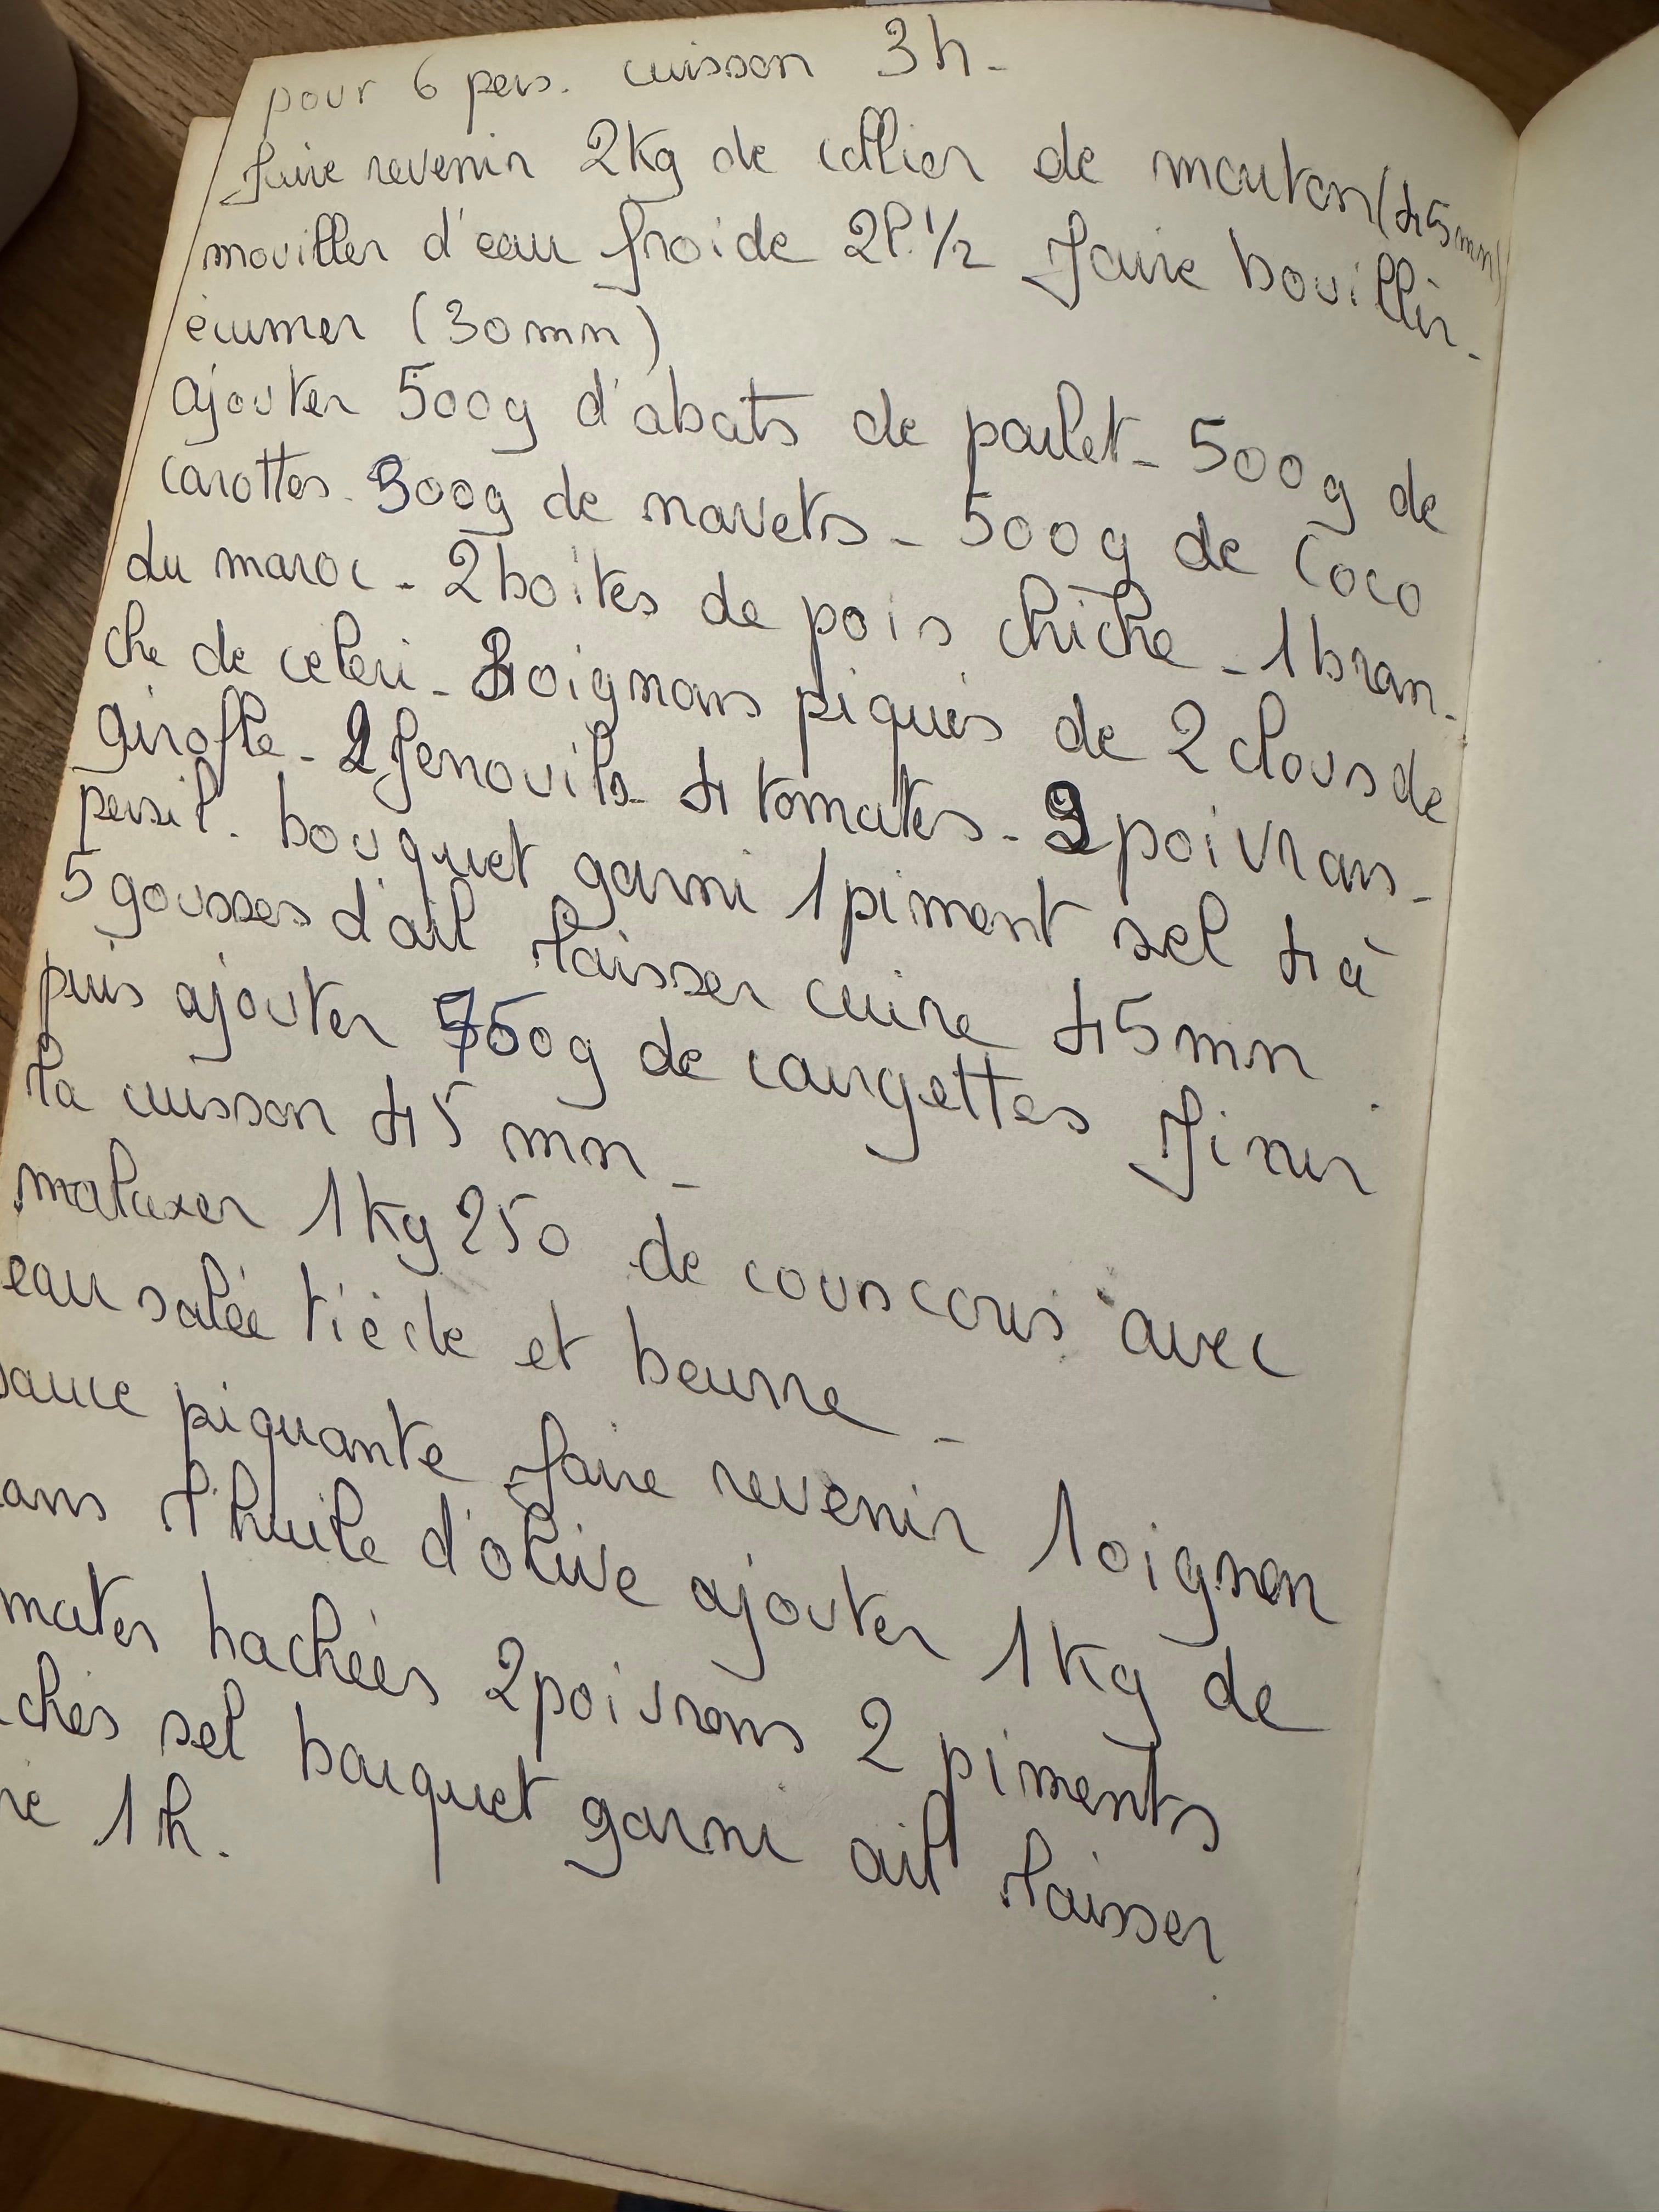 pour 6 pers. cuisson 3h-
faire revenir 2Kg de collier de mouton (45mn)
mouiller d'eau froide 2l.1/2 faire bouillir-
écumer (30mn)
ajouter 500g d'abats de poulet- 500g de
carottes. 300g de navets- 500g de coco
du maroc - 2 boites de pois chiche - 1 bran-
che de celeri - oignons piqués de 2 clous de
girofle - 2 fenouils - 4 tomates - 2 poivrons-
persil. bouquet garni 1 piment sel 4 à
5 gousses d'ail laisser cuire 45mn
puis ajouter 750g de courgettes finir
la cuisson 45 mn-
malaxer 1kg 250 de couscous avec
eau salée tiède et beurre-
sauce piquante faire revenir 1 oignon
ans l'huile d'olive ajouter 1kg de
mates hachées 2 poivrons 2 piments
chés sel bouquet garni ail laisser
re 1h.